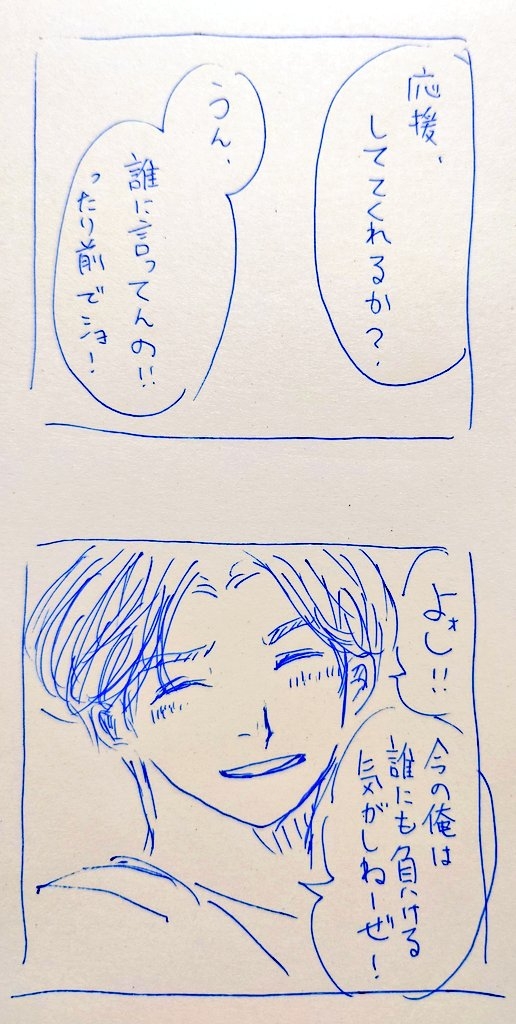 応援、
しててくれるか?
うん、
誰に言ってんの!!
ったり前でショ!
よぉし!!
今の俺は
誰にも負ける
気がしねーぜ!